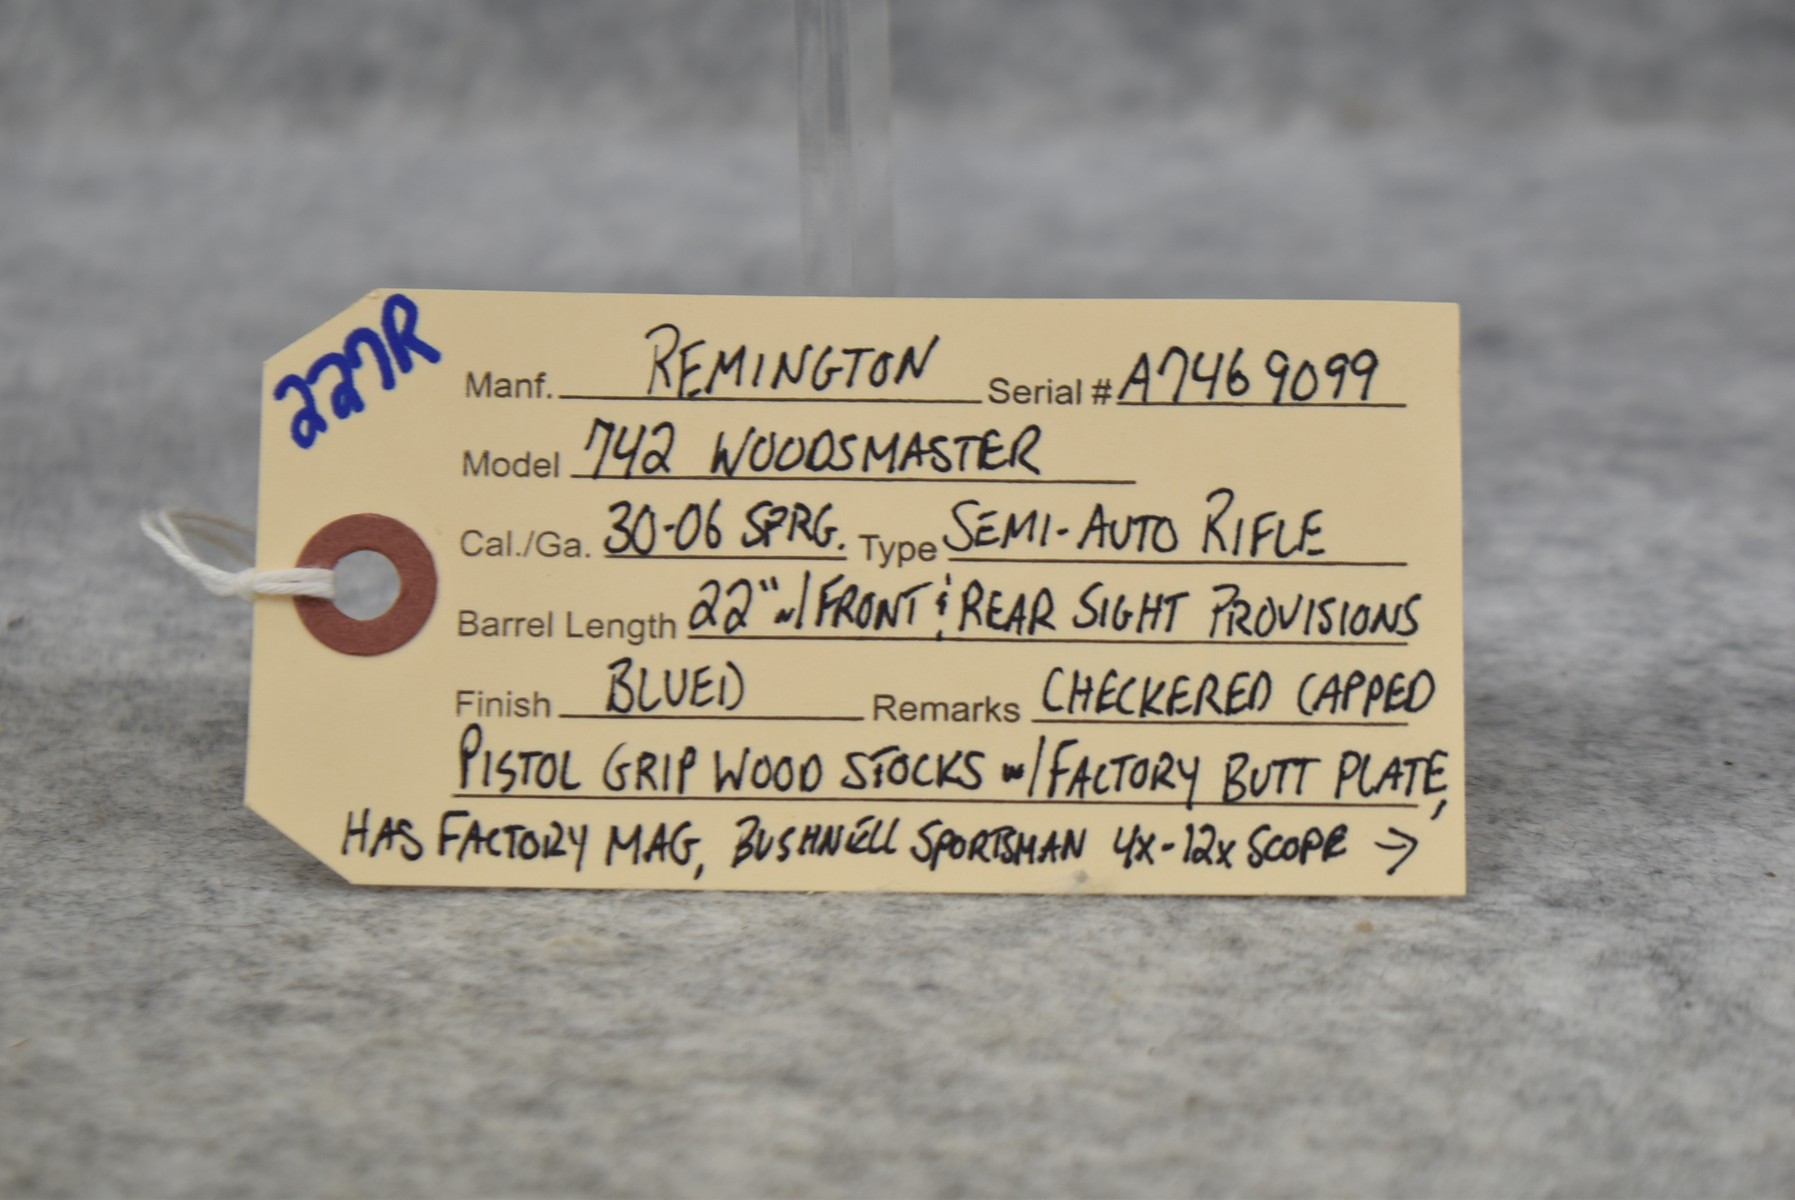 227R
Manf. REMINGTON Serial # A7469099
Model 742 WOODSMASTER
Cal./Ga. 30-06 SPRG. Type SEMI-AUTO RIFLE
Barrel Length 22" w/ FRONT & REAR SIGHT PROVISIONS
Finish BLUED Remarks CHECKERED CAPPED
PISTOL GRIP WOOD STOCKS w/ FACTORY BUTT PLATE,
HAS FACTORY MAG, BUSHNELL SPORTSMAN 4x-12x SCOPE →